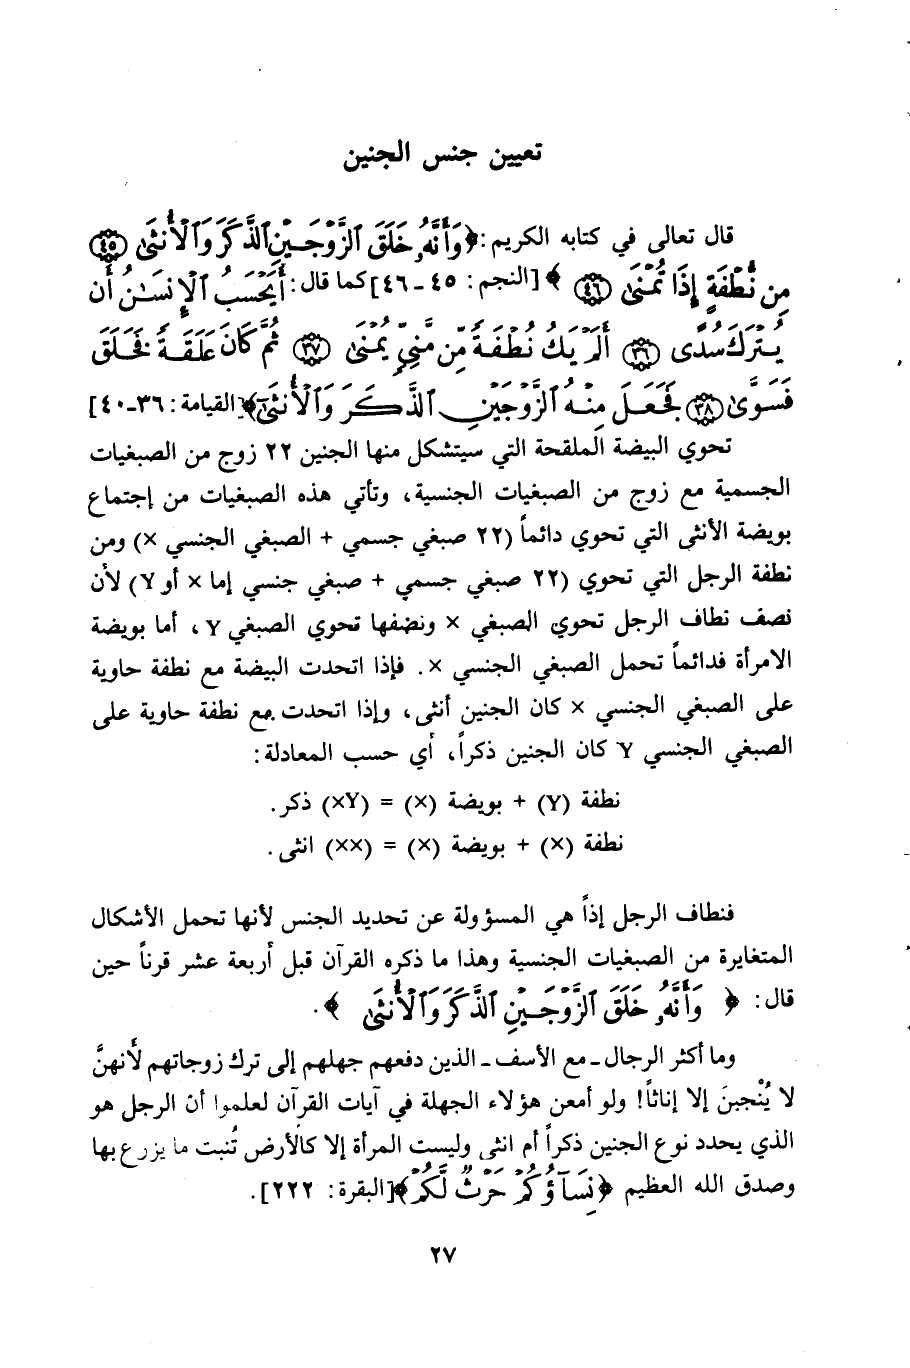 تعيين جنس الجنين
قال تعالى في كتابه الكريم: ﴿وَأَنَّهُۥ خَلَقَ ٱلزَّوۡجَيۡنِ ٱلذَّكَرَ وَٱلۡأُنثَىٰ ٤٥
مِن نُّطۡفَةٍ إِذَا تُمۡنَىٰ ٤٦ ﴾ [النجم: ٤٥ـ٤٦] كما قال: أَيَحۡسَبُ ٱلۡإِنسَٰنُ أَن
يُتۡرَكَ سُدًى ٣٦ أَلَمۡ يَكُ نُطۡفَةً مِّن مَّنِيٍّ يُمۡنَىٰ ٣٧ ثُمَّ كَانَ عَلَقَةً فَخَلَقَ
فَسَوَّىٰ ٣٨ فَجَعَلَ مِنۡهُ ٱلزَّوۡجَيۡنِ ٱلذَّكَرَ وَٱلۡأُنثَىٰٓ﴾ [القيامة: ٣٦ـ٤٠]
تحوي البيضة الملقحة التي سيتشكل منها الجنين ٢٢ زوج من الصبغيات
الجسمية مع زوج من الصبغيات الجنسية، وتأتي هذه الصبغيات من إجتماع
بويضة الأنثى التي تحوي دائماً (٢٢ صبغي جسمي + الصبغي الجنسي ×) ومن
نطفة الرجل التي تحوي (٢٢ صبغي جسمي + صبغي جنسي إما × أو Y) لأن
نصف نطاف الرجل تحوي الصبغي × ونصفها تحوي الصبغي Y، أما بويضة
الامرأة فدائماً تحمل الصبغي الجنسي ×. فإذا اتحدت البيضة مع نطفة حاوية
على الصبغي الجنسي × كان الجنين أنثى، وإذا اتحدت مع نطفة حاوية على
الصبغي الجنسي Y كان الجنين ذكراً، أي حسب المعادلة:
نطفة (Y) + بويضة (×) = (×Y) ذكر.
نطفة (×) + بويضة (×) = (××) انثى.
فنطاف الرجل إذاً هي المسؤولة عن تحديد الجنس لأنها تحمل الأشكال
المتغايرة من الصبغيات الجنسية وهذا ما ذكره القرآن قبل أربعة عشر قرناً حين
قال: ﴿ وَأَنَّهُۥ خَلَقَ ٱلزَّوۡجَيۡنِ ٱلذَّكَرَ وَٱلۡأُنثَىٰ ﴾.
وما أكثر الرجال ـ مع الأسف ـ الذين دفعهم جهلهم إلى ترك زوجاتهم لأنهنَّ
لا يُنْجبنَ إلا إناثاً! ولو أمعن هؤلاء الجهلة في آيات القرآن لعلموا أن الرجل هو
الذي يحدد نوع الجنين ذكراً أم انثى وليست المرأة إلا كالأرض تُنبت ما يزرع بها
وصدق الله العظيم ﴿نِسَآؤُكُمۡ حَرۡثٞ لَّكُمۡ﴾ [البقرة: ٢٢٢].
٢٧